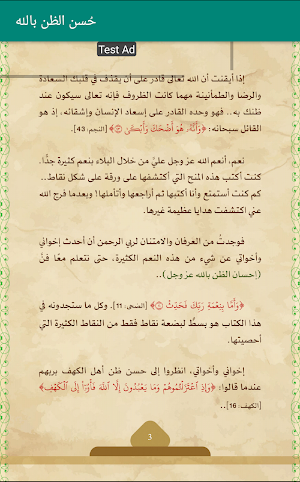 حُسن الظن بالله
Test Ad
إذا أيقنت أن الله تعالى قادر على أن يقذف في قلبك السعادة
والرضا والطمأنينة مهما كانت الظروف فإنه تعالى سيكون عند
ظنك به.. فهو وحده القادر على إسعاد الإنسان وإشقائه، إذ هو
القائل سبحانه: ﴿وَأَنَّهُ هُوَ أَضْحَكَ وَأَبْكَىٰ ﴾ [النجم: 43].
نعم، أنعم الله عز وجل عليّ من خلال البلاء بنعم كثيرة جدًا،
كنت أكتب هذه المنح التي أكتشفها على ورقة على شكل نقاط..
كم كنت أستمتع وأنا أكتبها ثم أراجعها وأتأملها! وبعدما فرج الله
عني اكتشفت هدايا عظيمة غيرها.
فوجدتُ من العرفان والامتنان لربي الرحمن أن أحدث إخواني
وأخواتي عن شيء من هذه النعم الكثيرة، حتى نتعلم معًا فنَّ
(إحسان الظن بالله عز وجل)..
﴿وَأَمَّا بِنِعْمَةِ رَبِّكَ فَحَدِّثْ ﴾ [الضحى: 11]. وكل ما ستجدونه في
هذا الكتاب هو بسطٌ لبضعة نقاط فقط من النقاط الكثيرة التي
أحصيتها.
إخواني وأخواتي، انظروا إلى حسن ظن أهل الكهف بربهم
عندما قالوا: ﴿وَإِذِ اعْتَزَلْتُمُوهُمْ وَمَا يَعْبُدُونَ إِلَّا اللَّهَ فَأْوُوا إِلَى الْكَهْفِ﴾
[الكهف: 16]..
3